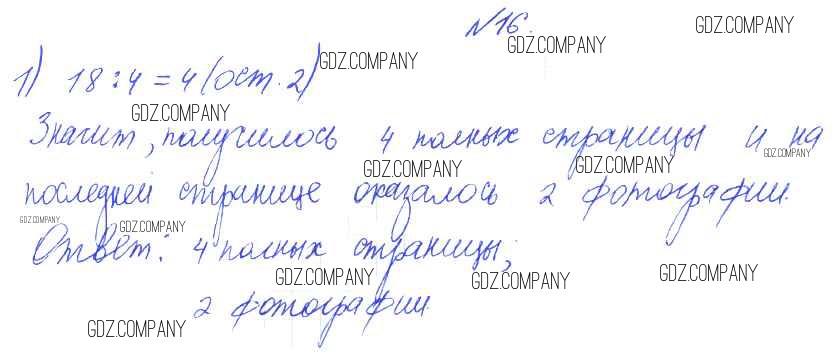 №16.
GDZ.COMPANY
GDZ.COMPANY
1) 18:4=4(ост.2)
GDZ.COMPANY
GDZ.COMPANY
Значит, получилось 4 полных страницы и на
GDZ.COMPANY
GDZ.COMPANY
GDZ.COMPANY
последней странице оказалось 2 фотографии.
GDZ.COMPANY
GDZ.COMPANY
Ответ: 4 полных страницы;
GDZ.COMPANY
GDZ.COMPANY
GDZ.COMPANY
2 фотографии
GDZ.COMPANY